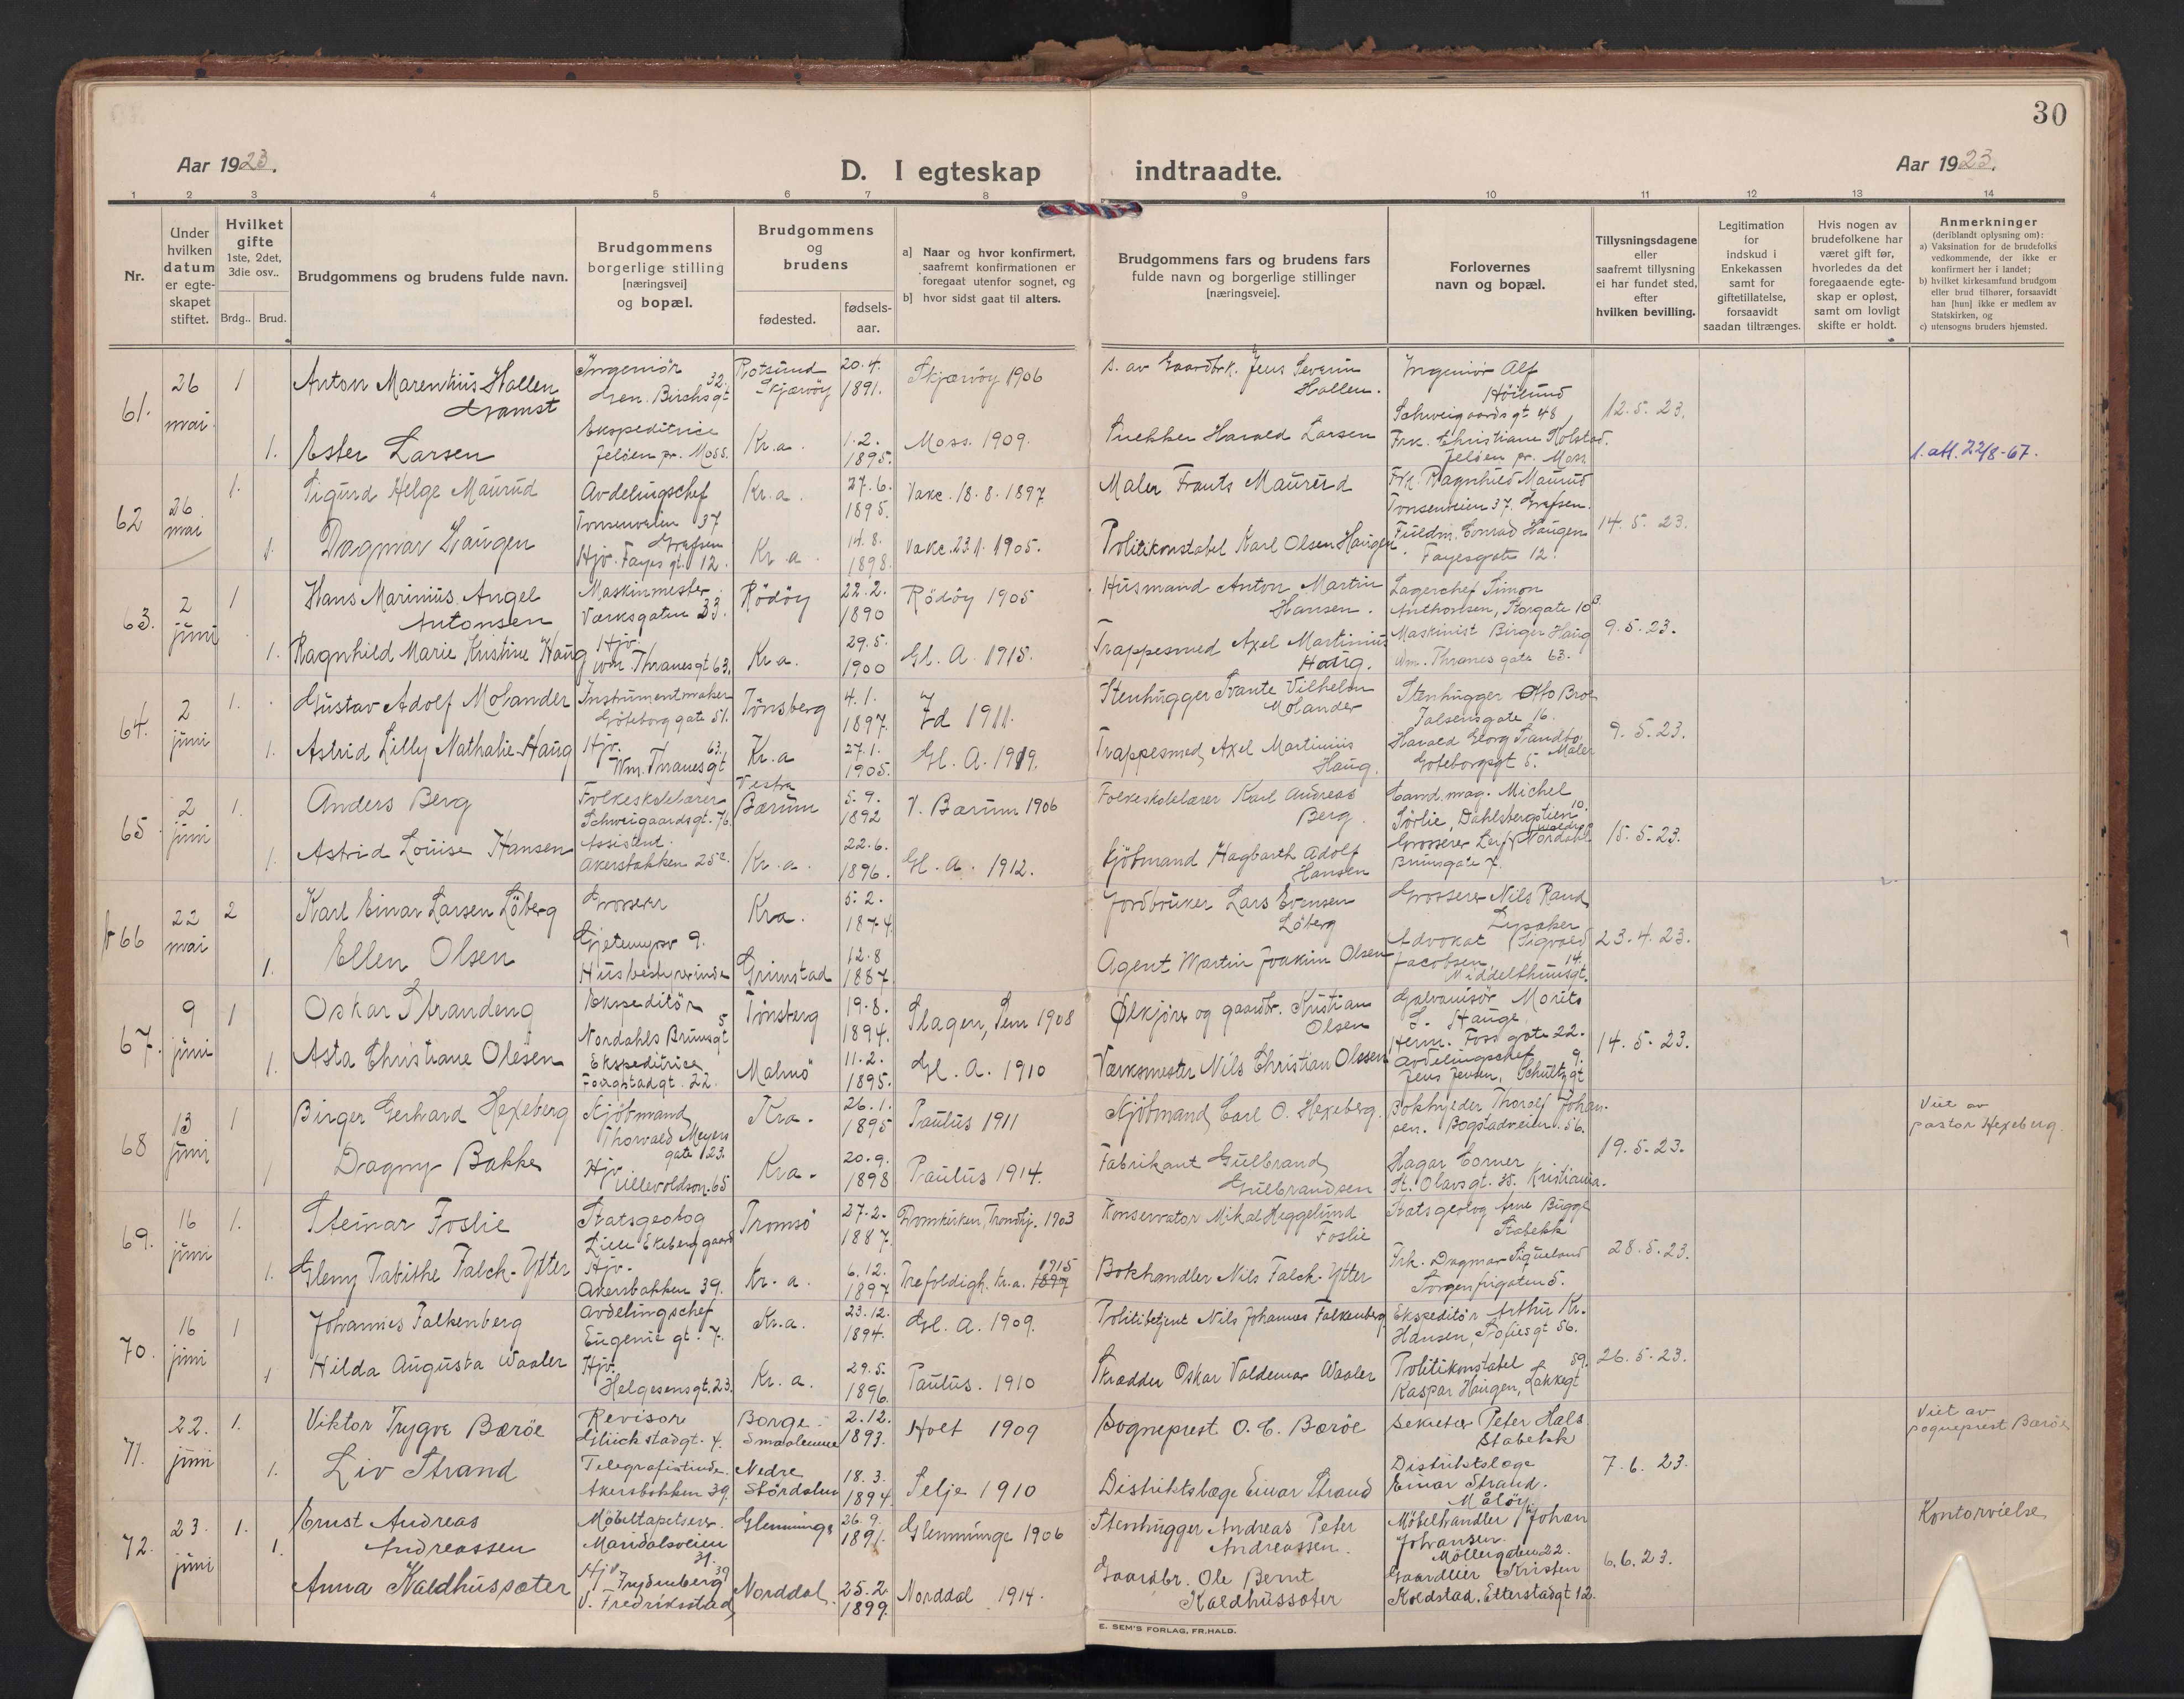 30
Aar 1923.
D. I egteskap
indtraadte.
Aar 1923.
1 2 3 4 5 6 7 8 9 10 11 12 13 14
Nr.
Under hvilken datum er egteskapet stiftet.
Hvilket gifte 1ste, 2det, 3die osv..
Brdg.. Brud.
Brudgommens og brudens fulde navn.
Brudgommens borgerlige stilling [næringsvei] og bopæl.
Brudgommens og brudens
fødested.
fødselsaar.
a] Naar og hvor konfirmert, saafremt konfirmationen er foregaat utenfor sognet, og
b] hvor sidst gaat til alters.
Brudgommens fars og brudens fars fulde navn og borgerlige stillinger [næringsveie].
Forlovernes navn og bopæl.
Tillysningsdagene eller saafremt tillysning ei har fundet sted, efter hvilken bevilling.
Legitimation for indskud i Enkekassen samt for giftetillatelse, forsaavidt saadan tiltrænges.
Hvis nogen av brudefolkene har været gift før, hvorledes da det foregaaende egteskap er opløst, samt om lovligt skifte er holdt.
Anmerkninger
(deriblandt oplysning om):
a) Vaksination for de brudefolks vedkommende, der ikke er konfirmert her i landet;
b) hvilket kirkesamfund brudgom eller brud tilhører, forsaavidt han [hun] ikke er medlem av Statskirken, og
c) utensogns bruders hjemsted.
61. 26 mai 1 Anton Marenhius Hallen Gramst Ingeniör Gen. Birchsgt 32. Rotsund Skjærvöy 20.4. 1891. Skjærvöy 1906 S. av Gaardbrk. Jens Severin Hallen. Ingeniör Alf Höilund Schweigaardsgt 48, 12.5.23.
1. Ester Larsen Ekspeditrice Jelöen pr. Moss. Kr.a. 1.2. 1895. Moss. 1909. Snekker Harald Larsen Frk. Christiane Kolstad. Jelöen pr. Moss 1. att. 22/8-67.
62 26. mai 1. Sigurd Helge Maurud Avdelingschef Tonsenveien 37 Grefsen Kr.a. 27.6. 1895. Vakc. 18.8.1897 Maler Frants Maurud Frk. Ragnhild Maurud Tonsenveien 37. Grefsen. 14.5.23.
1. Dagmar Haugen Hjv. Fayesgt. 12. Kr.a. 14.8. 1898. Vakc. 23.1.1905. Politikonstabel Karl Olsen Haugen. Fuldm. Conrad Haugen Fayesgate 12.
63. 2 juni 1 Hans Marinius Angel Antonsen Maskinmester Værksgaten 33. Rödöy 22.2. 1890 Rödöy 1905 Husmand Anton Martin Hansen. Lagerchef Simon Anthonsen, Storgate 10 B. 9.5.23.
1. Ragnhild Marie Kristine Haug Hjv. Wm. Thranesgt 63. Kr.a. 29.5. 1900 Gl. A. 1915. Trappesmed Axel Martinius Haug. Maskinist Birger Haug Wm. Thranes gate 63.
64. 2 juni 1. Gustav Adolf Molander Instrumentmaker Göteborg gate 51. Tönsberg 4.1. 1897. Zd 1911. Stenhugger Svante Vilhelm Molander Stenhugger Otto Broe Falsensgate 16. 9.5.23.
1. Astrid Lilly Nathalie Haug Hjv. Wm. Thranesgt 63. Kr.a 27.1. 1905. Gl. A. 1919. Trappesmed, Axel Martinius Haug. Harald Georg Sandbo, Maler Goteborgsgt 5.
65 2 juni 1. Anders Berg Folkeskolelærer Schweigaardsgt. 76. Vestre Bærum 5.9. 1892 V. Bærum 1906 Folkeskolelærer Karl Andreas Berg. Cand. mag. Michel Sörlie, Dahlsbergstien 10. 15.5.23.
1. Astrid Louise Hansen Assistent. Akersbakken 25 c. Kr.a. 22.6. 1896. Gl. A. 1912. Kjöbmand Hagbarth Adolf Hansen Grosserer Leif Nordahl Brunsgate 7.
66 22 mai 2 Karl Einar Larsen Löberg Grosserer Gjetemyrsv 9. Kra. 5.2. 1874. Jordbruker Lars Evensen Löberg Grosserer Nils Rand Lysaker 23.4.23.
1. Ellen Olsen Husbestyrerinde Grimstad 12.8 1887. Agent Martin Joakim Olsen Advokat Sigvald Jacobsen Middelthunsgt. 14.
67. 9 juni 1 Oskar Strandeng Ekspeditör Nordahls Brunsgt 5 Tönsberg 19.8. 1894. Slagen, Sem 1908 Ölkjörer og gaardbr. Kristian Olsen Galvanisör Morits L. Hauge Herm. Foss gate 22. 14.5.23.
1. Asta Christiane Olesen Ekspeditrice Fougstadgt. 22. Malmö 11.2. 1895. Gl. A. 1910 Værksmester Nils Christian Olesen Avdelingschef Jens Jensen, Schultzgt 9.
68 13 juni 1 Birger Gerhard Hexeberg Kjöbmand Thorvald Meyers gate 23. Kra. 26.1. 1895 Paulus 1911 Kjöbmand, Carl O. Hexeberg. Bokholder Thorolf Johansen. Bogstadveien 56. 19.5.23. Viet av pastor Hexeberg.
1 Dagny Bakke Hjv. Ullevoldsv. 65 Kra. 20.9. 1898 Paulus 1914. Fabrikant Gulbrand Gulbrandsen Hagar Corner St. Olavsgt. 35. Kristiania.
69. 16 juni 1. Steinar Foslie Statsgeolog Lille Ekeberg gaard Tromsö 27.2. 1887. Domkirken, Trondhj. 1903 Konservator Mikal Heggelund Foslie Statsgeolog Arne Bugge Stabekk 28.5.23.
1. Gleny Tabithe Falch-Ytter Hjv. Akersbakken 39. Kr.a. 6.12. 1897 Trefoldigh. Kr.a. 1897 1915 Bokhandler Nils Falch-Ytter Frk. Dagmar Siqueland Sorgenfrigaten 5.
70. 16 juni 1 Johannes Falkenberg Avdelingschef Eugenie gt. 7. Kr.a. 23.12. 1894. Gl. A. 1909. Politibetjent Nils Johannes Falkenberg Ekspeditör Arthur Kr. Hansen, Sofiesgt 56. 26.5.23.
1 Hilda Augusta Waaler Hjv. Helgesensgt. 23. Kr.a. 29.5. 1896. Paulus. 1910 Skrædder Oskar Valdemar Waaler Politikonstabel Kaspar Haugen, Lakkegt 59.
71. 22. juni 1. Viktor Trygve Bærøe Revisor Glückstadgt. 4. Borge Smaalenene 2.12. 1893. Holt 1909 Sogneprest O. C. Bærøe Sekretær Peter Hals Stabekk 7.6.23. Viet av sogneprest Bærøe
1. Liv Strand Telegrafistinde. Akersbakken 39. Nedre Stördalen 18.3. 1894 Selje 1910 Distriktslæge Einar Strand Distriktslæge Einar Strand. Målöy.
72. 23. juni 1. Ernst Andreas Andreassen Möbeltapetserer. Maridalsveien 31. Glemminge 26.9. 1891. Glemminge 1906 Stenhugger Andreas Peter Andreassen. Møbelhandler Johan Johansen. Möllergaten 22. 6.6.23. Kontorvielse
1. Anna Kaldhussæter Hjv. Frydenberg 39 V. Fredriksstad Norddal. 25.2 1899. Norddal 1914. Gaardbr. Ole Bernt Kaldhussæter Gaardeier Kristen Koldstad. Etterstadgt 12.
E. SEM'S FORLAG, FR.HALD.